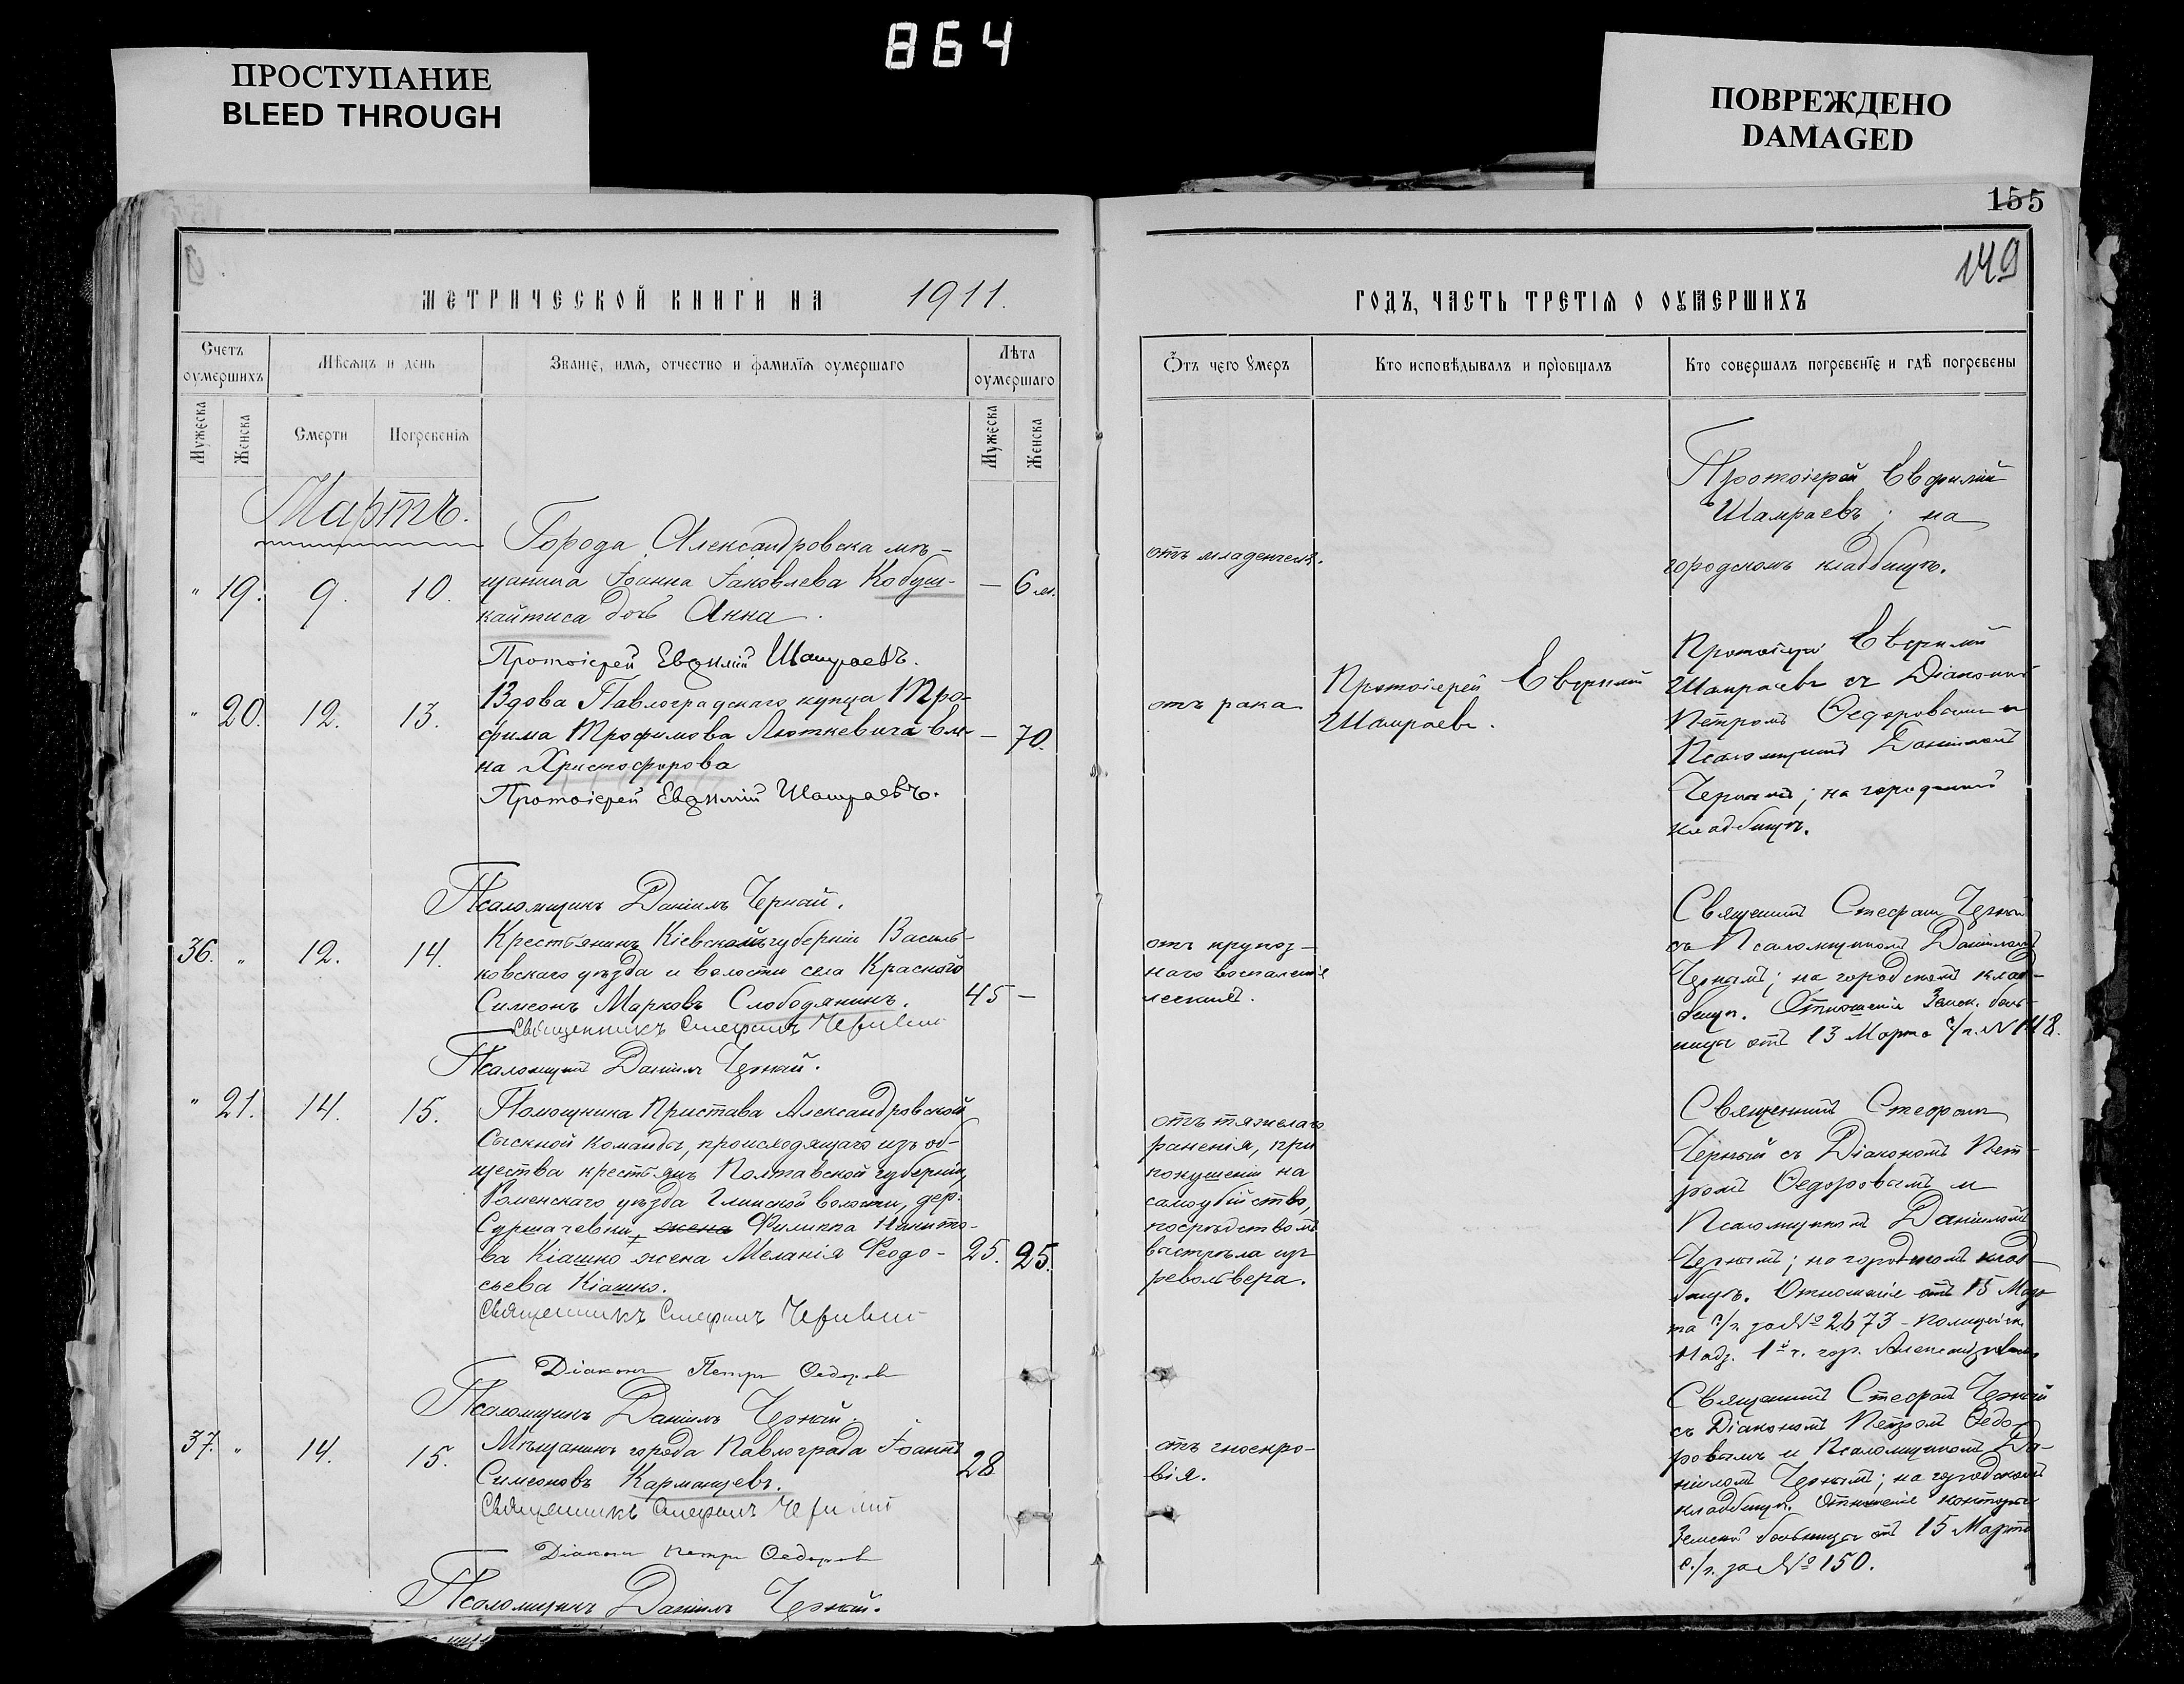 864
ПРОСТУПАНИЕ
BLEED THROUGH
ПОВРЕЖДЕНО
DAMAGED
155
149
МЕТРИЧЕСКОЙ КНИГИ НА 1911.
Счетъ оумершихъ
Мѣсяцъ и день
Званіе, имя, отчество и фамилія оумершаго
Лѣта оумершаго
Мужеска
Женска
Смерти
Погребенія
Мужеска
Женска
Мартъ.
" 19. 9. 10.
Города Александровска мѣ-
щанина Іоанна Іаковлева Кобуш-
кайтиса дочь Анна.
— 6 м.
Протоіерей Евѳимій Шамраевъ.
" 20. 12. 13.
Вдова Павлоградскаго купца Тро-
фима Трофимова Люткевича
на Христофорова
— 70.
Протоіерей Евѳимій Шамраевъ.
Псаломщикъ Даніилъ Черный.
36. " 12. 14.
Крестьянинъ Кіевской губерніи Василь-
ковскаго уѣзда и волости села Краснаго
Симеонъ Марковъ Слободянинъ.
45 —
Священникъ Стефанъ Черный
Псаломщикъ Даніилъ Черный.
" 21. 14. 15.
Помощника Пристава Александровской
Сыскной Команды, происходящаго изъ об-
щества крестьянъ Полтавской губерніи,
Роменскаго уѣзда Глинской волости, дер.
Сурмачевки, жена Филиппа Никито-
ва Кіашко жена Меланія Ѳеодо-
сьева Кіашко.
25. 25.
Священникъ Стефанъ Черный
Діаконъ Петръ Ѳедоровъ
Псаломщикъ Даніилъ Черный.
37. " 14. 15.
Мѣщанинъ города Павлограда Іоаннъ
Симеоновъ Карманцевъ.
28
Священникъ Стефанъ Черный
Діаконъ Петръ Ѳедоровъ
Псаломщикъ Даніилъ Черный.
ГОДЪ, ЧАСТЬ ТРЕТІЯ О ОУМЕРШИХЪ
Отъ чего умеръ
Кто исповѣдывалъ и пріобщалъ
Кто совершалъ погребеніе и гдѣ погребены
отъ младенческ.
Протоіерей Евфимій
Шамраевъ; на
городскомъ кладбищѣ.
отъ рака
Протоіерей Евфимій
Шамраевъ.
Протоіерей Евфимій
Шамраевъ съ Діакономъ
Петромъ Ѳедоровымъ и
Псаломщикомъ Даніиломъ
Чернымъ; на городскомъ
кладбищѣ.
отъ крупоз-
наго воспаленія
легкихъ.
Священникъ Стефанъ Черный
съ Псаломщикомъ Даніиломъ
Чернымъ; на городскомъ клад-
бищѣ. Отношеніе Земск. боль-
ницы отъ 13 Марта с/г. № 148.
отъ тяжелаго
раненія, при
покушеніи на
самоубійство,
посредствомъ
выстрѣла изъ
револьвера.
Священникъ Стефанъ
Черный съ Діакономъ Пет-
ромъ Ѳедоровымъ и
Псаломщикомъ Даніиломъ
Чернымъ; на городскомъ клад-
бищѣ. Отношеніе отъ 15 Мар-
та с/г. за № 2673 - Полицейск.
Надз. 1й ч. гор. Александровска
отъ гноекро-
вія.
Священникъ Стефанъ Черный
съ Діакономъ Петромъ Ѳедо-
ровымъ и Псаломщикомъ Да-
ніиломъ Чернымъ; на городскомъ
кладбищѣ. Отношеніе конторы
Земской больницы отъ 15 Марта
с./г. за № 150.